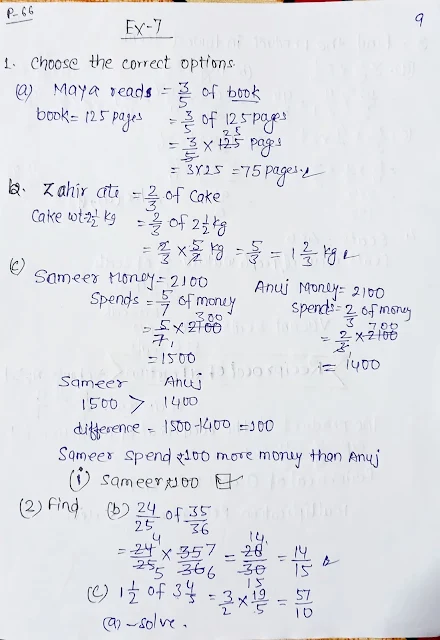 P-66
Ex-7
9
1. Choose the correct options
(a) Maya reads = 3/5 of book
book = 125 pages = 3/5 of 125 pages
= 3/5 × 125 pages 25
= 3×25 = 75 pages
b. Zahir ate = 2/3 of Cake
Cake wt = 2 1/2 kg = 2/3 of 2 1/2 kg
= 2/3 × 5/2 kg = 5/3 = 1 2/3 kg
(c) Sameer Money = 2100
Spends = 5/7 of money
= 5/7 × 2100 300
1
= 1500
Anuj Money = 2100
Spends = 2/3 of money
= 2/3 × 2100 700
= 1400
Sameer Anuj
1500 > 1400
difference = 1500-1400 = 100
Sameer spend ₹100 more money than Anuj
(i) Sameer ₹100
(2) Find (b) 24/25 of 35/36
= 24/25 × 35/36 = 28/30 = 14/15
4 7 14
5 6 15
(c) 1 1/2 of 3 4/5 = 3/2 × 19/5 = 57/10
(a) - solve.